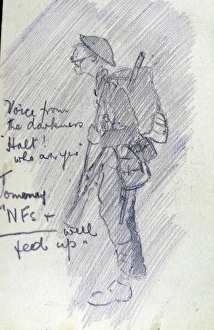 Voice from
the darkness
Halt!
who are you
Tommy
"NFs +
well
fed up"